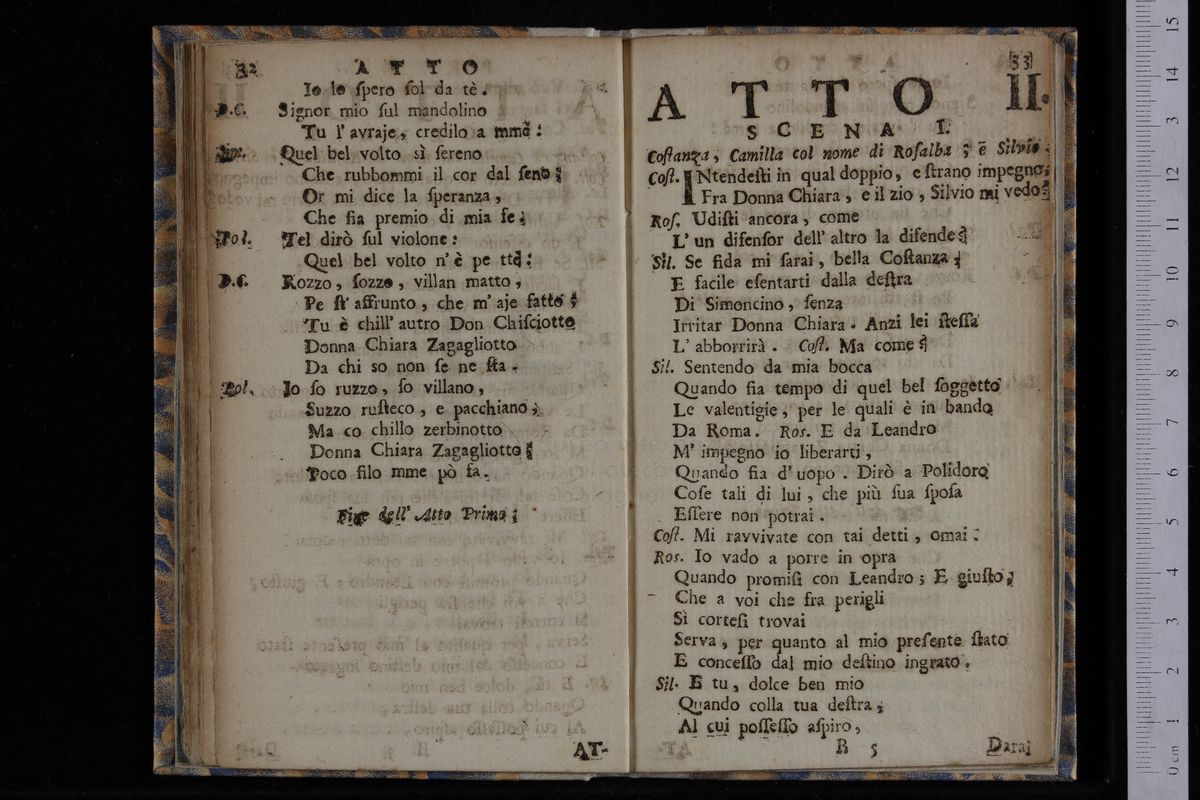 32 ATTO
Io lo ſpero ſol da tè.
D.C. Signor mio ſul mandolino
Tu l' avraje, credilo a mmè:
Sim. Quel bel volto sì ſereno
Che rubbommi il cor dal ſeno;
Or mi dice la ſperanza,
Che ſia premio di mia fe.
Pol. Tel dirò ſul violone:
Quel bel volto n' è pe ttè:
D.C. Rozzo, ſozzo, villan matto,
Pe ſt' affrunto, che m' aje fatto;
Tu è chill' autro Don Chiſciotto
Donna Chiara Zagagliotto
Da chi so non ſe ne ſta.
Pol. Io ſo ruzzo, ſo villano,
Suzzo ruſteco, e pacchiano;
Ma co chillo zerbinotto
Donna Chiara Zagagliotto
Poco filo mme pò fa.
Fine dell' Atto Primo.
AT-
33
ATTO II.
SCENA I.
Coſtanza, Camilla col nome di Roſalba; e Silvio.
Coſt. INtendeſti in qual doppio, e ſtrano impegno
Fra Donna Chiara, e il zio, Silvio mi vedo?
Roſ. Udiſti ancora, come
L' un difenſor dell' altro la difende?
Sil. Se fida mi ſarai, bella Coſtanza;
E facile eſentarti dalla deſtra
Di Simoncino, ſenza
Irritar Donna Chiara. Anzi lei ſteſſa
L' abborrirà. Coſt. Ma come?
Sil. Sentendo da mia bocca
Quando fia tempo di quel bel ſoggetto
Le valentigie, per le quali è in bando
Da Roma. Ros. E da Leandro
M' impegno io liberarti,
Quando fia d' uopo. Dirò a Polidoro
Coſe tali di lui, che più ſua ſpoſa
Eſſere non potrai.
Coſt. Mi ravvivate con tai detti, omai:
Ros. Io vado a porre in opra
Quando promiſi con Leandro; E giuſto;
Che a voi che fra perigli
Sì corteſi trovai
Serva, per quanto al mio preſente ſtato
E conceſſo dal mio deſtino ingrato.
Sil. E tu, dolce ben mio
Quando colla tua deſtra;
Al cui poſſeſſo aſpiro,
B 5 Darai